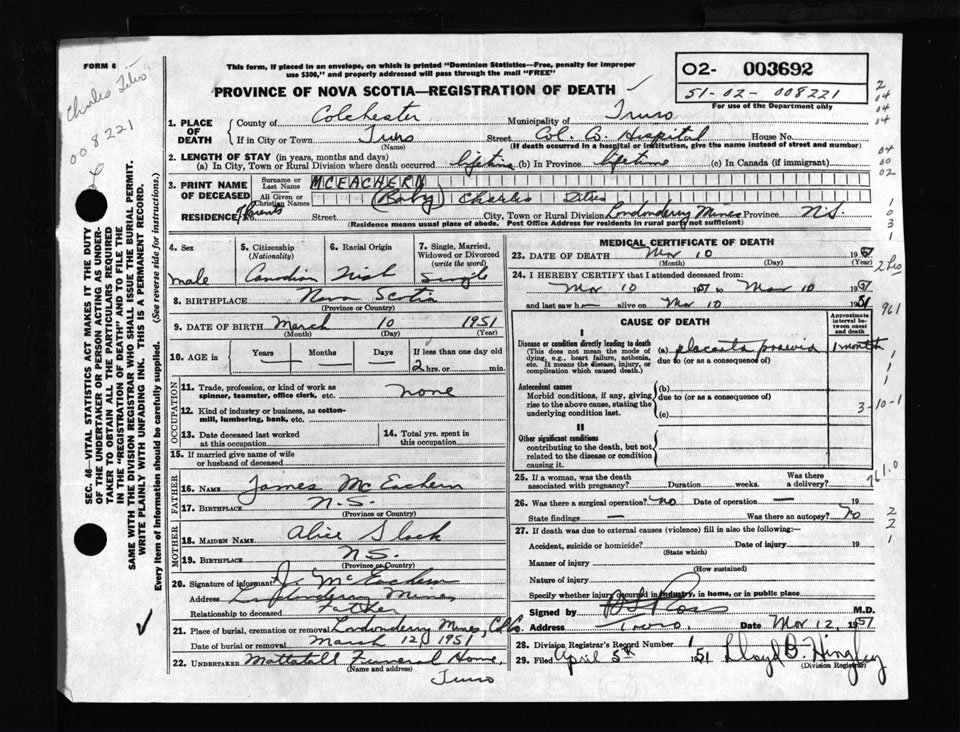 FORM 6
Charles Titus
008221
This form, if placed in an envelope, on which is printed "Dominion Statistics—Free, penalty for improper
use $300," and properly addressed will pass through the mail "FREE"
PROVINCE OF NOVA SCOTIA—REGISTRATION OF DEATH
O2- 003692
51-02-008221
For use of the Department only
2
04
04
04
1. PLACE OF DEATH
County of Colchester Municipality of Truro
If in City or Town Truro Street Col. Co. Hospital House No.
(Name) (If death occurred in a hospital or institution, give name instead of street and number)
2. LENGTH OF STAY (in years, months and days)
(a) In City, Town or Rural Division where death occurred lifetime (b) In Province lifetime (c) In Canada (if immigrant)
04
00
02
3. PRINT NAME OF DECEASED
Surname or Last Name MCEACHERN
All Given or Christian Names (Baby) Charles Titus
RESIDENCE of Parents Street City, Town or Rural Division Londonderry Mines Province N.S.
(Residence means usual place of abode. Post Office Address for residents in rural parts not sufficient)
1
0
3
1
4. Sex
male
5. Citizenship
(Nationality)
Canadian
6. Racial Origin
Irish
7. Single, Married,
Widowed or Divorced
(write the word)
Single
8. BIRTHPLACE Nova Scotia
(Province or Country)
9. DATE OF BIRTH March 10 1951
(Month) (Day) (Year)
10. AGE in Years Months Days If less than one day old
2 hrs. or min.
OCCUPATION
11. Trade, profession, or kind of work as
spinner, teamster, office clerk, etc. none
12. Kind of industry or business, as cotton-
mill, lumbering, bank, etc.
13. Date deceased last worked
at this occupation
14. Total yrs. spent in
this occupation
15. If married give name of wife
or husband of deceased
FATHER
16. NAME James McEachern
17. BIRTHPLACE N.S.
(Province or Country)
MOTHER
18. MAIDEN NAME Alice Slack
19. BIRTHPLACE N.S.
(Province or Country)
20. Signature of informant J. McEachern
Address Londonderry Mines
Relationship to deceased Father
21. Place of burial, cremation or removal Londonderry Mines, Col. Co.
Date of burial or removal March 12, 1951
22. UNDERTAKER Mattatall Funeral Home,
(Name and address)
Truro
MEDICAL CERTIFICATE OF DEATH
23. DATE OF DEATH Mar 10 1951
(Month) (Day) (Year)
24. I HEREBY CERTIFY that I attended deceased from:
Mar 10 1951 to Mar 10 1951
and last saw h alive on Mar 10 1951
961
CAUSE OF DEATH
Approximate
interval be-
tween onset
and death
I
Disease or condition directly leading to death
(This does not mean the mode of
dying, e.g., heart failure, asthenia,
etc. It means the disease, injury, or
complication which caused death.)
(a) placenta praevia 1 month
due to (or as a consequence of)
Antecedent causes
Morbid conditions, if any, giving
rise to the above cause, stating the
underlying condition last.
(b)
due to (or as a consequence of)
(c)
3-10-1
II
Other significant conditions
contributing to the death, but not
related to the disease or condition
causing it.
25. If a woman, was the death
associated with pregnancy? Duration weeks. Was there
a delivery?
26. Was there a surgical operation? no Date of operation — 19
State findings — Was there an autopsy? no
27. If death was due to external causes (violence) fill in also the following:—
Accident, suicide or homicide? Date of injury 19
(State which)
Manner of injury
(How sustained)
Nature of injury
Specify whether injury occurred in industry, in home, or in public place
2
2
1
Signed by Ross M.D.
Address Truro. Date Mar 12, 1951
28. Division Registrar's Record Number 1
29. Filed April 5th 51 Lloyd B. Hingley
(Division Registrar)
SEC. 46—VITAL STATISTICS ACT MAKES IT THE DUTY
OF THE UNDERTAKER OR PERSON ACTING AS UNDER-
TAKER TO OBTAIN ALL THE PARTICULARS REQUIRED
IN THE "REGISTRATION OF DEATH" AND TO FILE THE
SAME WITH THE DIVISION REGISTRAR WHO SHALL ISSUE THE BURIAL PERMIT.
WRITE PLAINLY WITH UNFADING INK. THIS IS A PERMANENT RECORD.
Every item of information should be carefully supplied. (See reverse side for instructions.)